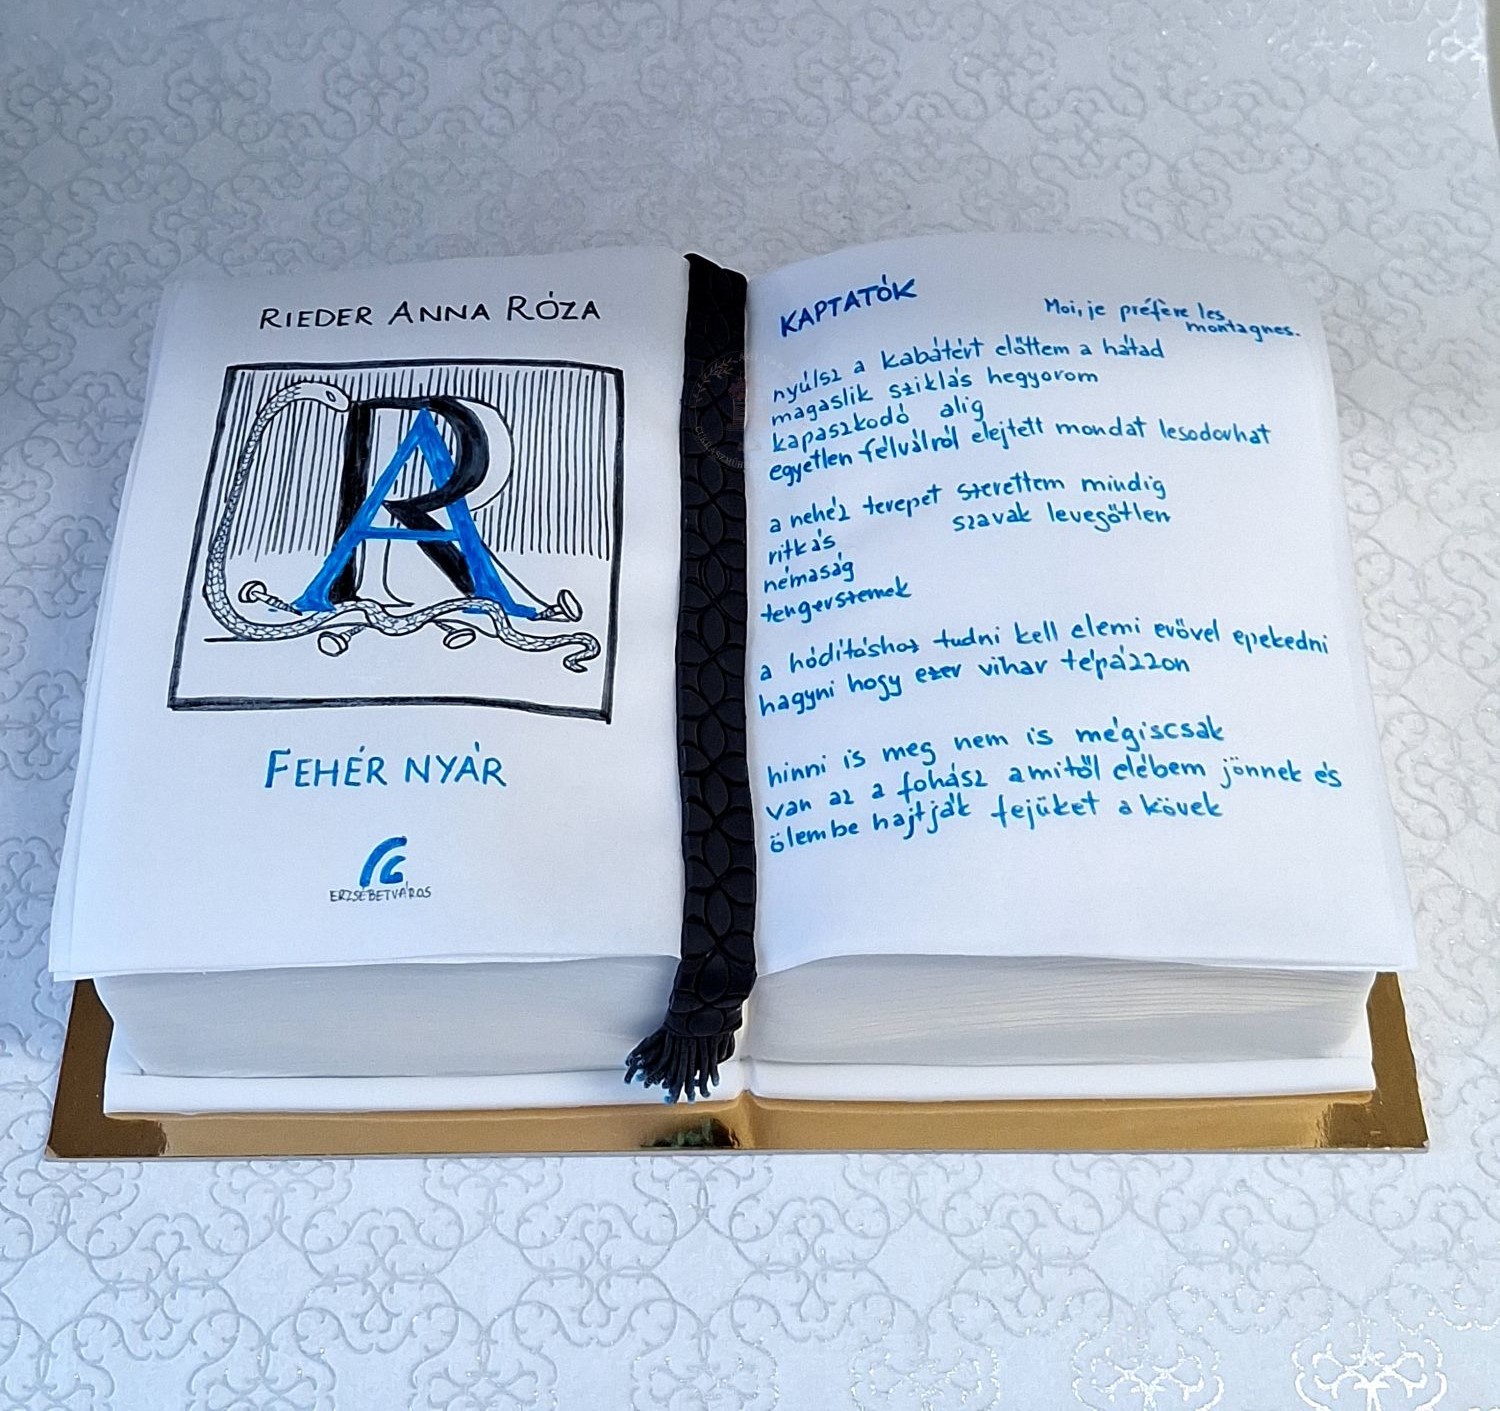 RIEDER ANNA RÓZA
RA
FEHÉR NYÁR
ERZSÉBETVÁROS
KAPTATÓK
Moi, je préfère les
montagnes.
nyúlsz a kabátért előttem a hátad
magaslik sziklás hegyorom
kapaszkodó alig
egyetlen félválról elejtett mondat lesodorhat
a nehéz terepet szerettem mindig
szavak levegőtlen
ritkás
némaság
tengerszemek
a hódításhoz tudni kell elemi erővel epekedni
hagyni hogy ezer vihar tépázzon
hinni is meg nem is mégiscsak
van az a fohász amitől elébem jönnek és
ölembe hajtják fejüket a kövek